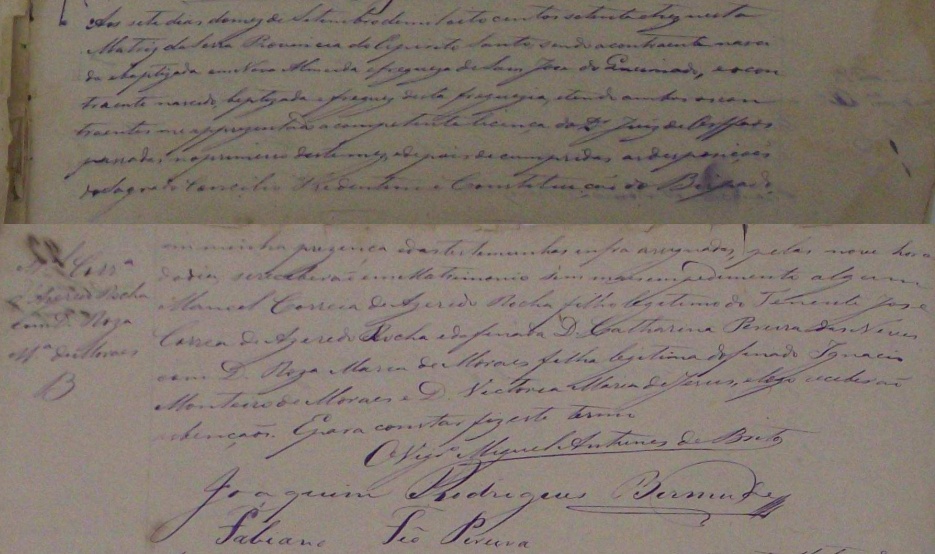 Aos sete dias do mez de Setembro de mil oito centos setenta e tres nesta
Matriz da Serra Provincia do Espirito Santo, sendo a contraente nasci
da e baptizada em Nova Almeida e fregueza de Sam Jose do Queimado, e o con
traente nascido, baptizado e freguez desta freguezia, e tendo ambos os con
traentes me appresentado a competente licença do Dr Juiz de Orffãos
passada no primeiro deste mez, e depois de cumpridas as desposições
do Sagrado Concilio Tredentino e Constituição do Bispado,
em minha presença e das testemunhas infra assignadas, pelas nove horas
do dia, se receberão em Matrimonio sem impedimento algum
Manoel Correia de Azeredo Rocha filho legitimo do Tenente Jose
Correa de Azeredo Rocha e da finada D. Catharina Pereira das Neves
com D. Roza Maria de Moraes filha legitima do finado Ignacio
Monteiro de Moraes e D. Victoria Maria de Jesus, e logo receberão
as bençãos. E para constar fiz este termo
O Vigro Miguel Antunes de Brito
Joaquim Rodrigues Bermude
Fabiano Feo Pereira
Mel Corra
d'Azeredo Rocha
com D. Roza
Ma de Moraes
B